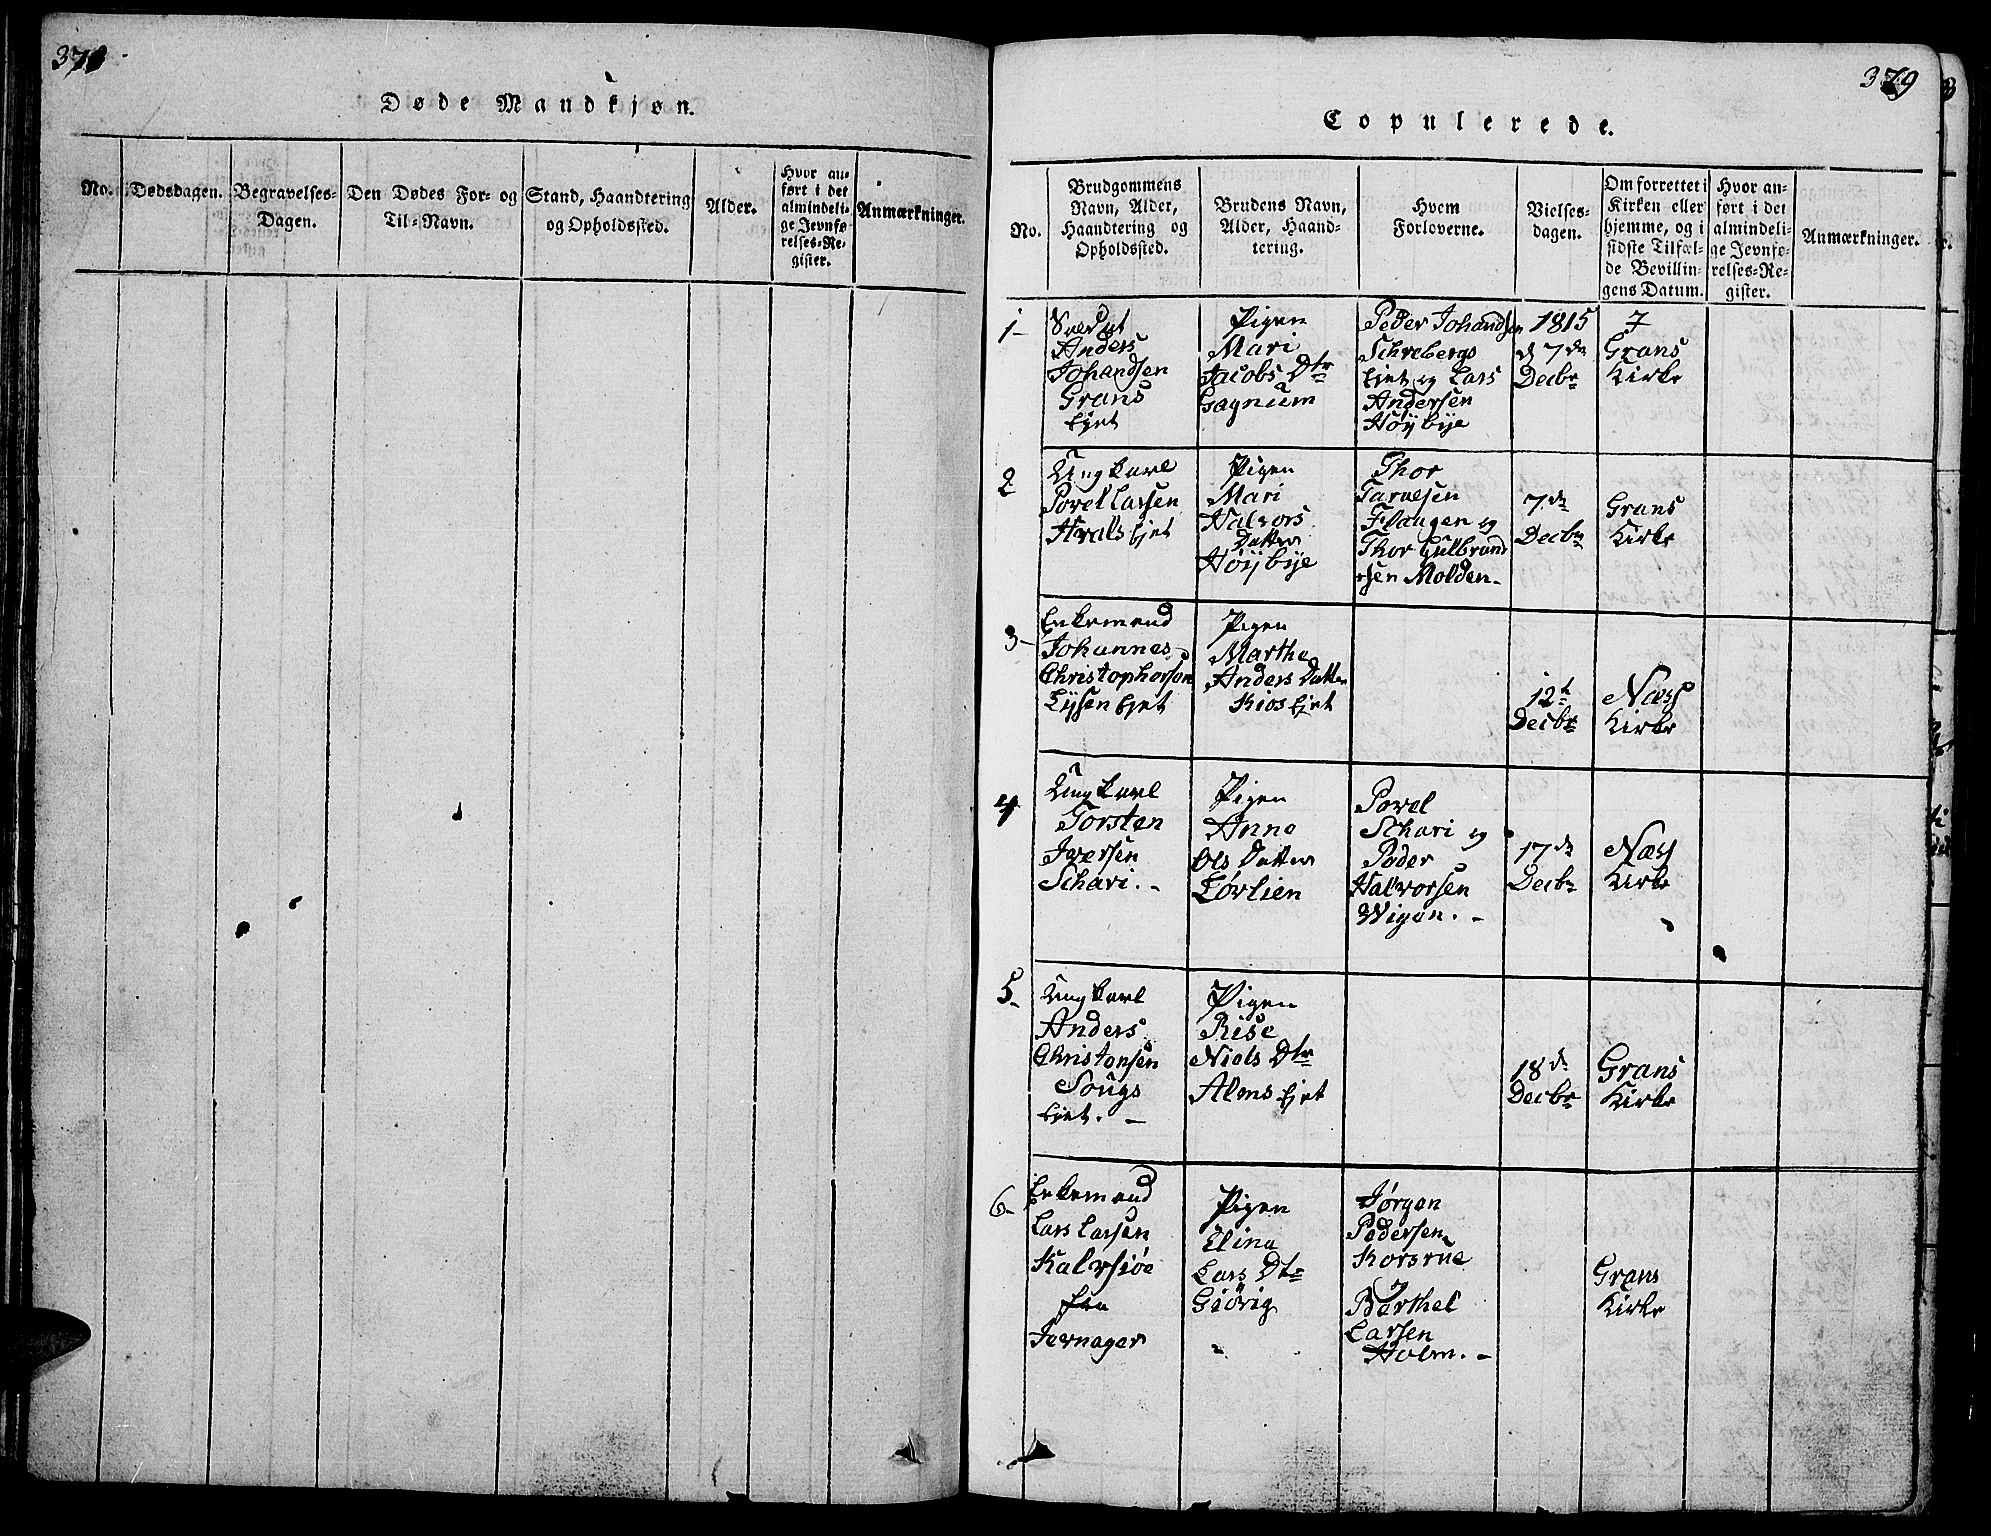 378
Døde Mandkjøn.
No.
Dødsdagen.
Begravelses-
Dagen.
Den Dødes For- og
Til-Navn.
Stand, Haandtering
og Opholdssted.
Alder.
Hvor an-
ført i det
almindeli-
ge Jevnfø-
relses-Re-
gister.
Anmærkninger.
379
Copulerede.
No.
Brudgommens
Navn, Alder,
Haandtering og
Opholdssted.
Brudens Navn,
Alder, Haand-
tering.
Hvem
Forloverne.
Vielses-
dagen.
Om forrettet i
Kirken eller
hjemme, og i
sidste Tilfæl-
de Bevillin-
gens Datum.
Hvor an-
ført i det
almindeli-
ge Jevnfø-
relses-Re-
gister.
Anmærkninger.
1-
Soldat
Anders
Johandsen
Grans
Ejet
Pigen
Mari
Jacobs Dtr
Gagnum
Peder Johandsen
Schrebergs
Ejet og Lars
Andersen
Høÿbÿe
1815
d 7de
Decbr
Grans
Kirke
2
Ungkarl
Povel Larsen
Hvals Ejet
Pigen
Mari
Halvors
Datter
Høÿbÿe
Thor
Tarvesen
Flaugen og
Thor Gulbrand
sen Molden-
7de
Decbr
Grans
Kirke
3-
Enkemand
Johannes
Christophersen
Lÿsen Ejet
Pigen
Marthe
Anders Datter
Kios Ejet
12t
Decbr
Næss
Kirke
4
Ungkarl
Torsten
Iversen
Schari.-
Pigen
Anne
Ols Datter
Lørlien
Povel
Schari og
Peder
Halvorsen
Wigen.-
17de
Decbr
Næss
Kirke
5-
Ungkarl
Anders
Christensen
Sougs
Ejet.-
Pigen
Rise
Niels Dtr
Alms Ejet
18de
Decbr
Grans
Kirke
6-
Enkemand
Lars Larsen
Kalvsiøe
fra
Jevnager
Pigen
Eline
Lars Dtr
Giörig
Jørgen
Pedersen
Korsrue
og
Barthel
Larsen
Holm.-
Grans
Kirke